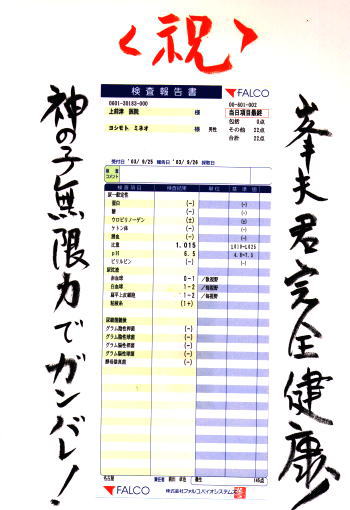 <祝>
峯夫君完全健康!
神の子無限力でガンバレ!
検査報告書
FALCO
0601-30183-000
00-601-002
上前津 医院 様
当日項目最終
包括 0点
ヨシモト ミネオ 様 男性
その他 22点
合計 22点
受付日 '03/ 9/25 報告日 '03/ 9/26 採取日
検査項目 検査結果 単位 基準値
尿一般定性
蛋白 (-) (-)
糖 (-) (-)
ウロビリノーゲン (±) (±)
ケトン体 (-) (-)
潜血 (-) (-)
比重 1.015 1.010~1.025
pH 6.5 4.8~7.5
ビリルビン (-) (-)
尿沈渣
赤血球 0-1 /数視野
白血球 1-2 /毎視野
扁平上皮細胞 1-2 /毎視野
粘液糸 (1+)
グラム陽性桿菌 (-)
グラム陽性球菌 (-)
グラム陰性桿菌 (-)
グラム陰性球菌 (-)
酵母様真菌 (-)
名古屋
FALCO 株式会社ファルコバイオシステムズ